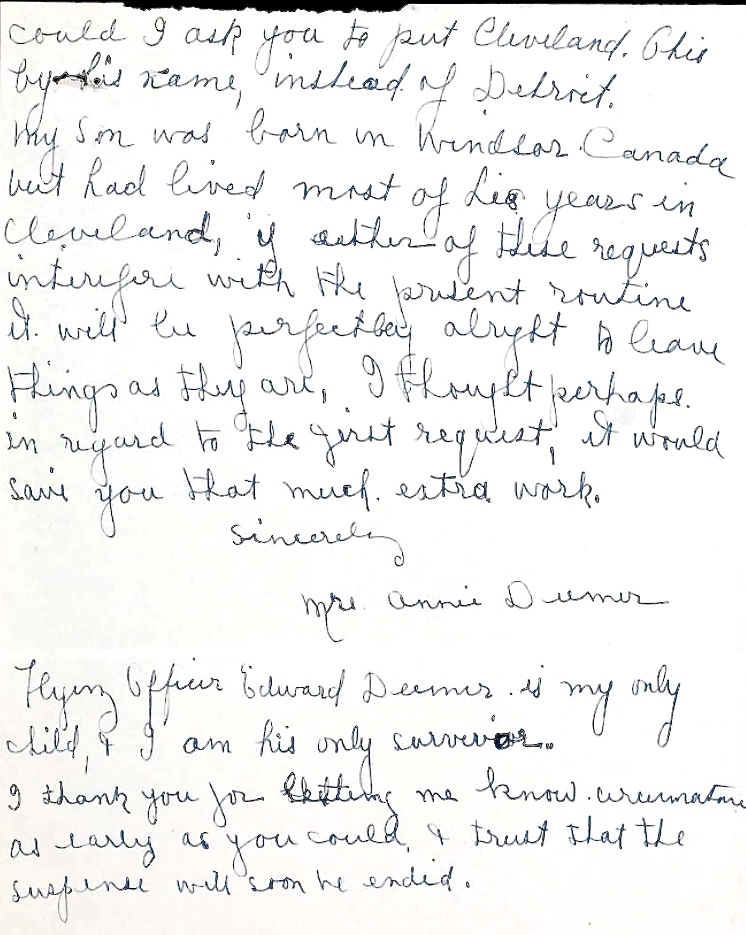 could I ask you to put Cleveland. Ohio
by his name, instead of Detroit.
My Son was born in Windsor. Canada
but had lived most of his years in
Cleveland, if either of these requests
interfere with the present routine
it will be perfectley alright to leave
things as they are, I thought perhaps.
in regard to the first request, it would
save you that much extra work.
Sincerely
Mrs. Annie Deemer
Flying Officer Edward Deemer. is my only
child, & I am his only survivor..
I thank you for letting me know.
as early as you could, & trust that the
suspense will soon be ended.